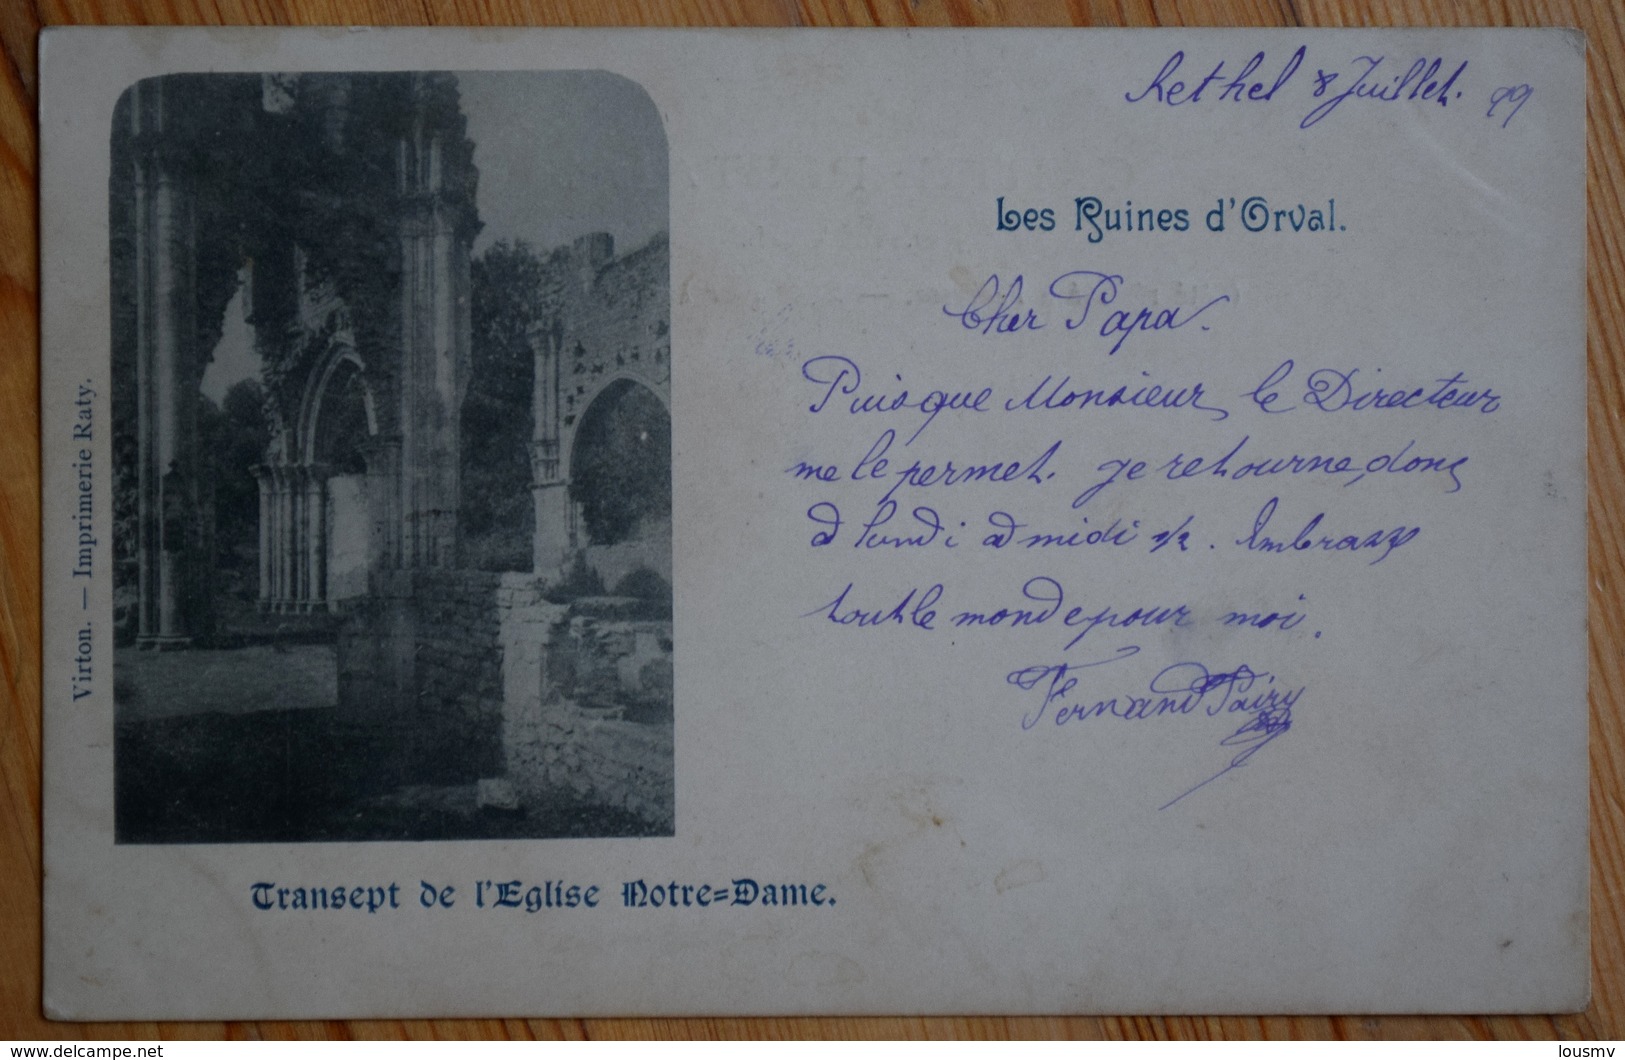 Rethel 8 Juillet. 99
Les Ruines d'Orval.
Cher Papa.
Puisque Monsieur le Directeur
me le permet. je retourne donc
à lundi à midi 1/2. Embrasse
tout le monde pour moi.
Fernand Pairy
Virton. — Imprimerie Raty.
Transept de l'Eglise Notre-Dame.
© delcampe.net
lousmv